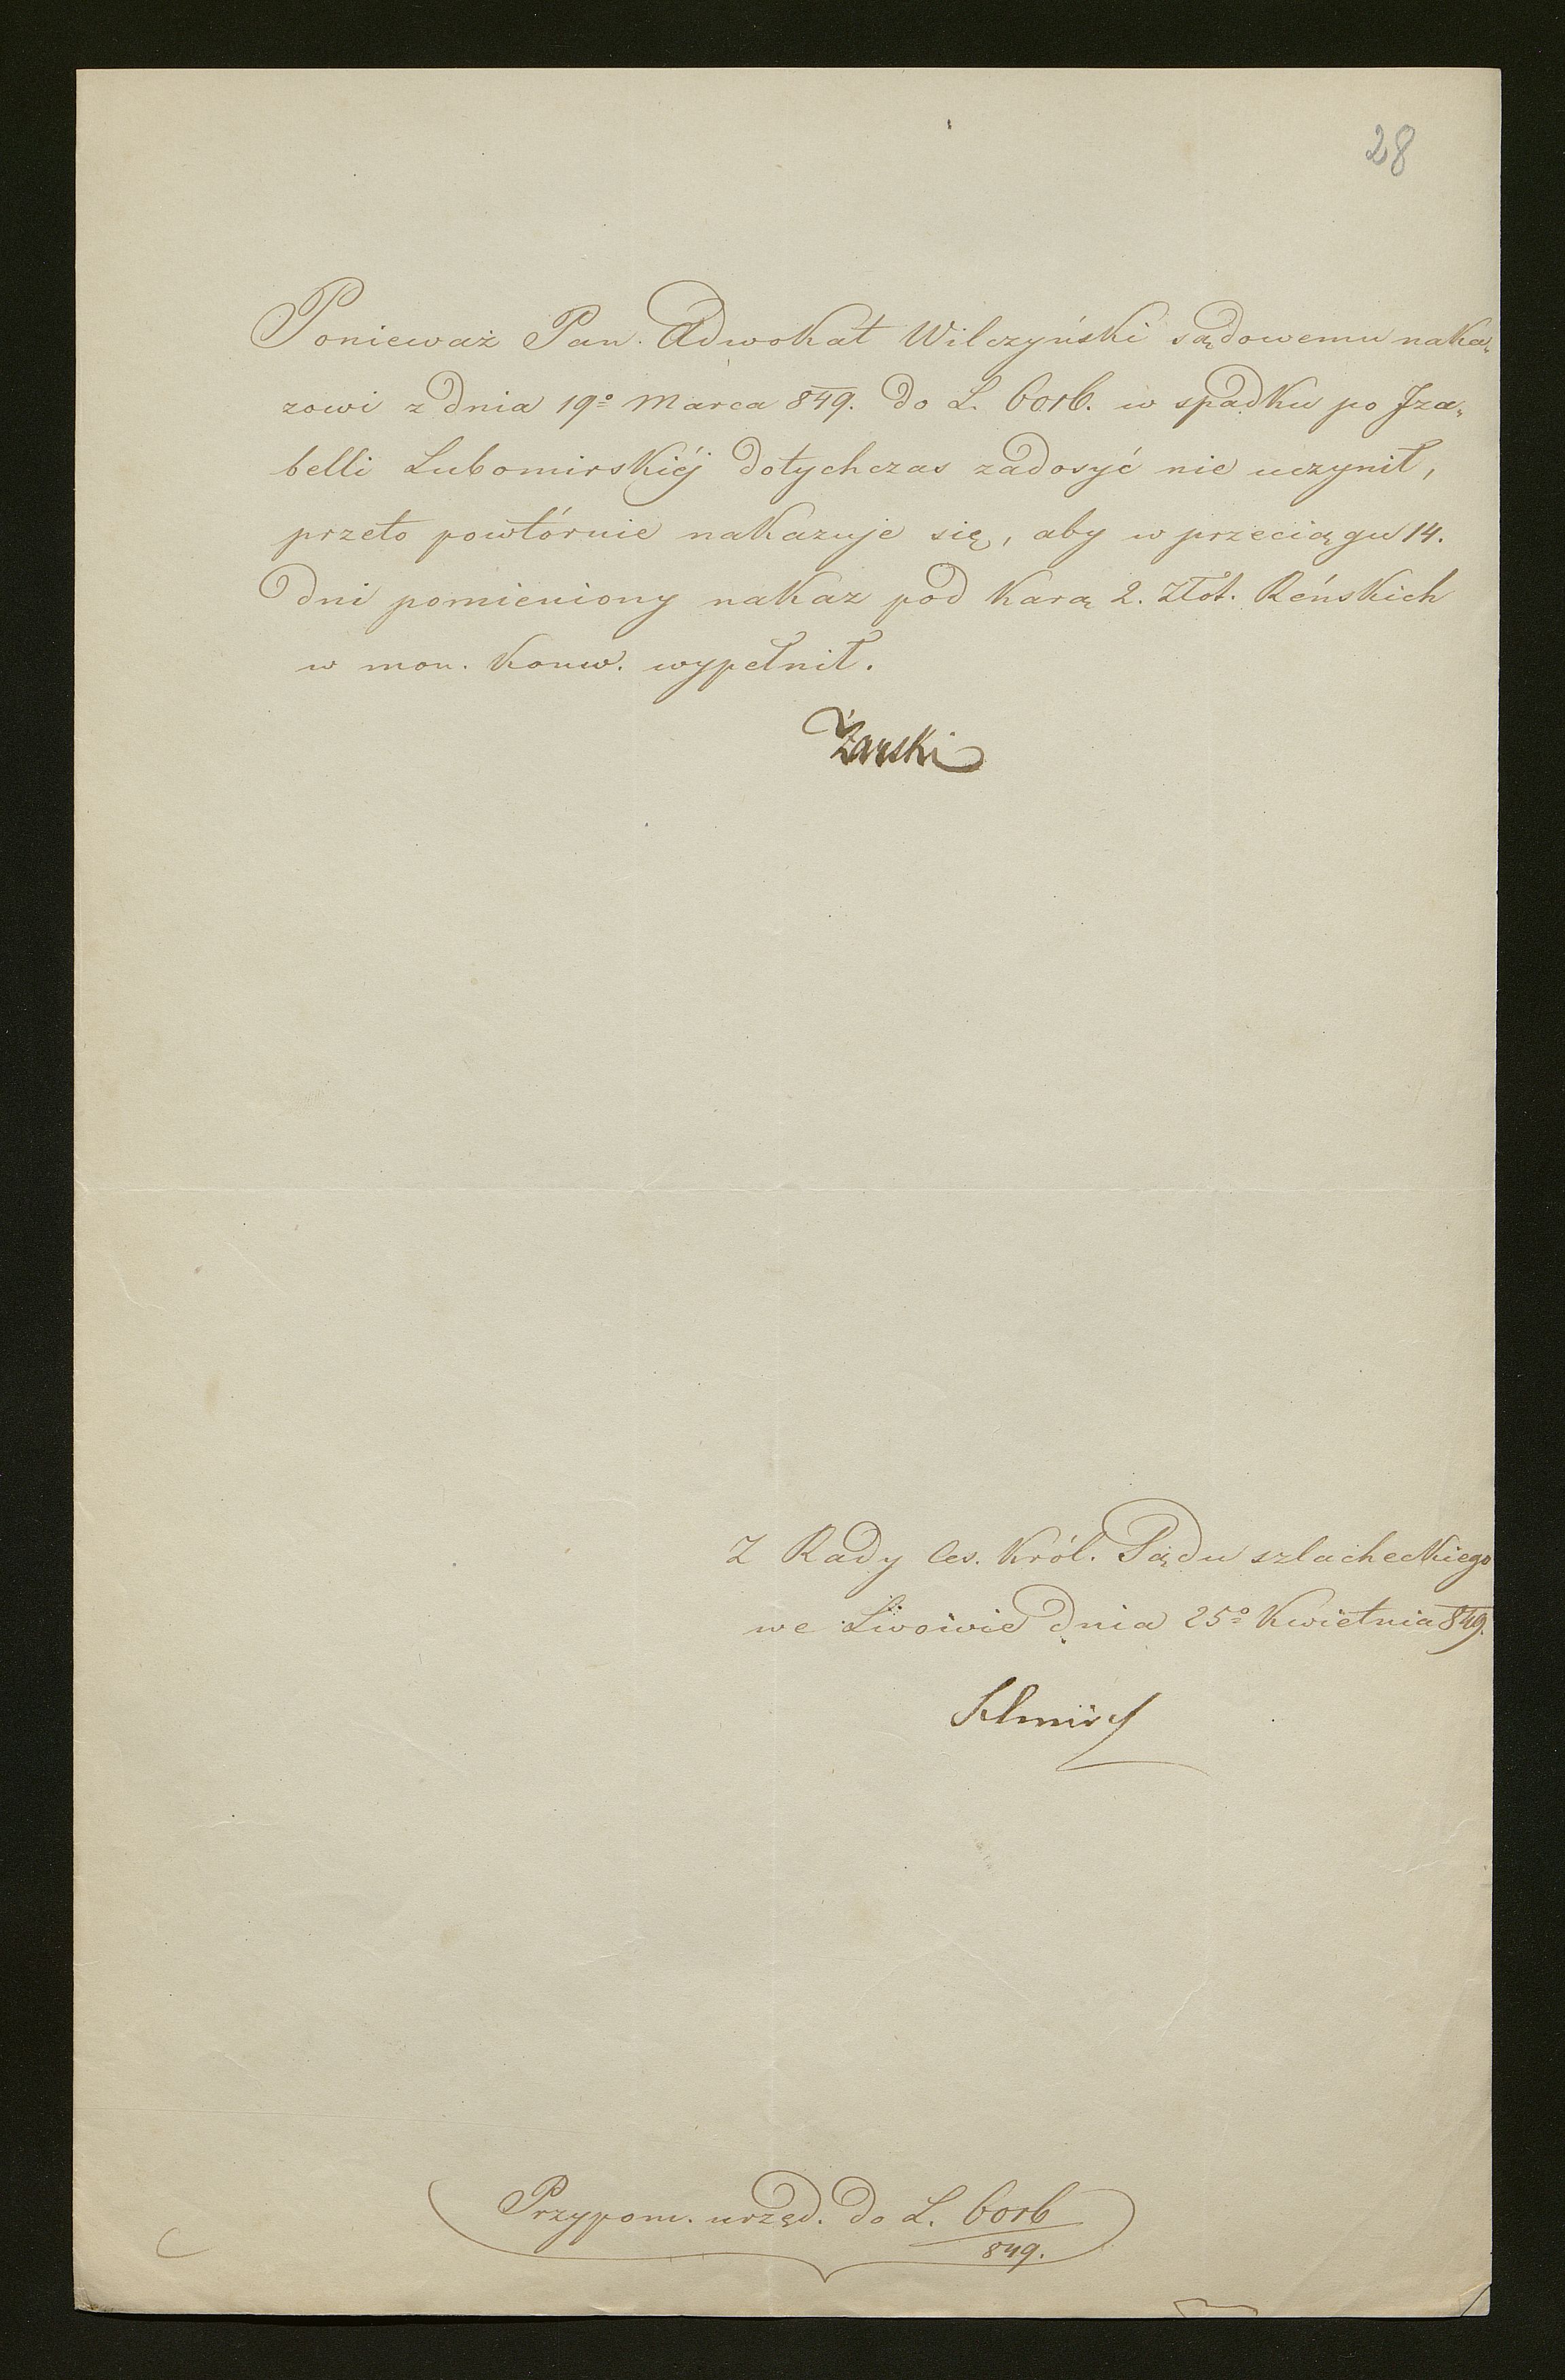 28
Ponieważ Pan. Adwokat Wilczyński sądowemu naka„
zowi z dnia 19º Marca 849. do L. 6016. w spadku po Iza„
belli Lubomirskiéj dotychczas zadosyć nie uczynił,
przeto powtórnie nakazuje się, aby w przeciągu 14.
dni pomieniony nakaz pod karą 2. Złot. Reńskich
w mon. konw. wypełnił.
Żarski
Z Rady Ces. Król. Sądu szlacheckiego
we Lwowie dnia 25º Kwietnia 849.
Przypom. urzęd. do L. 6016
849.